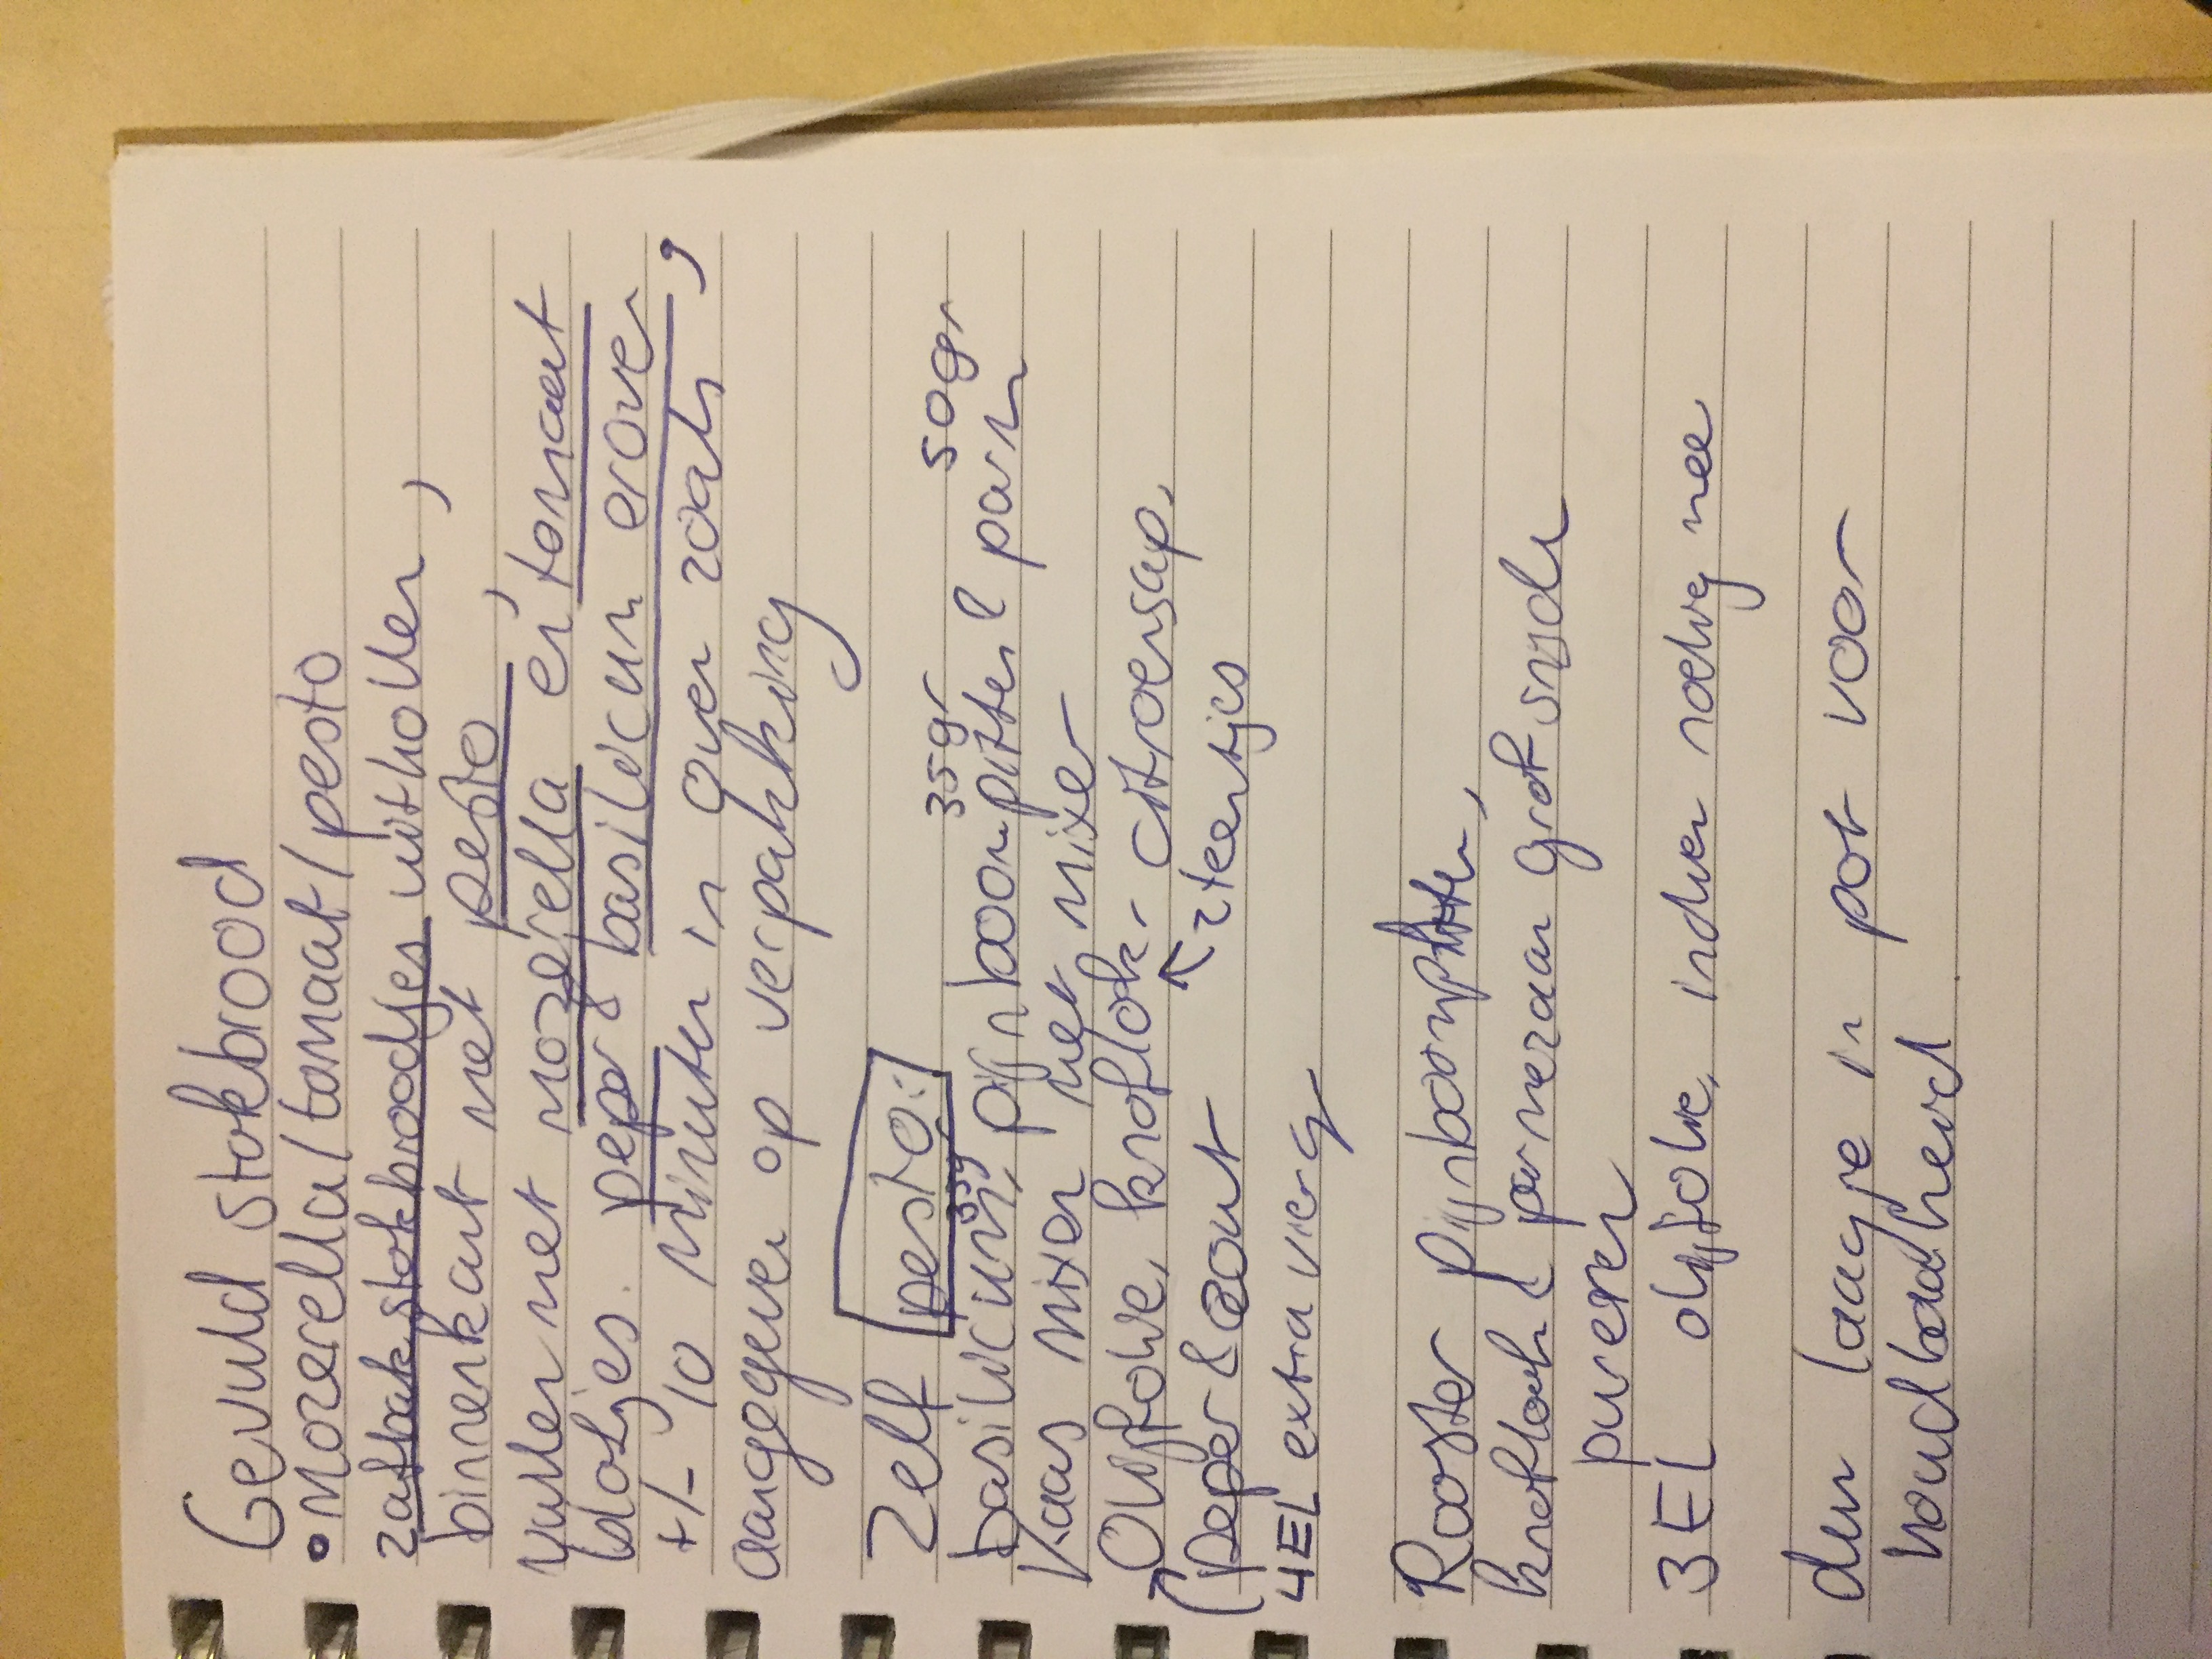 Gevuld stokbrood
• Mozerella/tomaat/pesto
2 afbak stokbroodjes uithollen,
binnenkant met pesto,
vullen met mozerella en tomaat
blokjes. peper & basilicum erover,
+/- 10 minuten in oven zoals
aangegeven op verpakking
Zelf pesto:
35gr 35gr 50gr
basilicum, pijnboompitten & parm
Kaas mixen met mixer
Olijfolie, knoflook, citroensap,
peper & zout 2 teentjes
4EL extra vierg
Rooster pijnboompitten,
knoflook & parmezaan grof snijden
pureren
3EL olijfolie, indien nodig meer
dun laagje in pot voor
houdbaarheid.